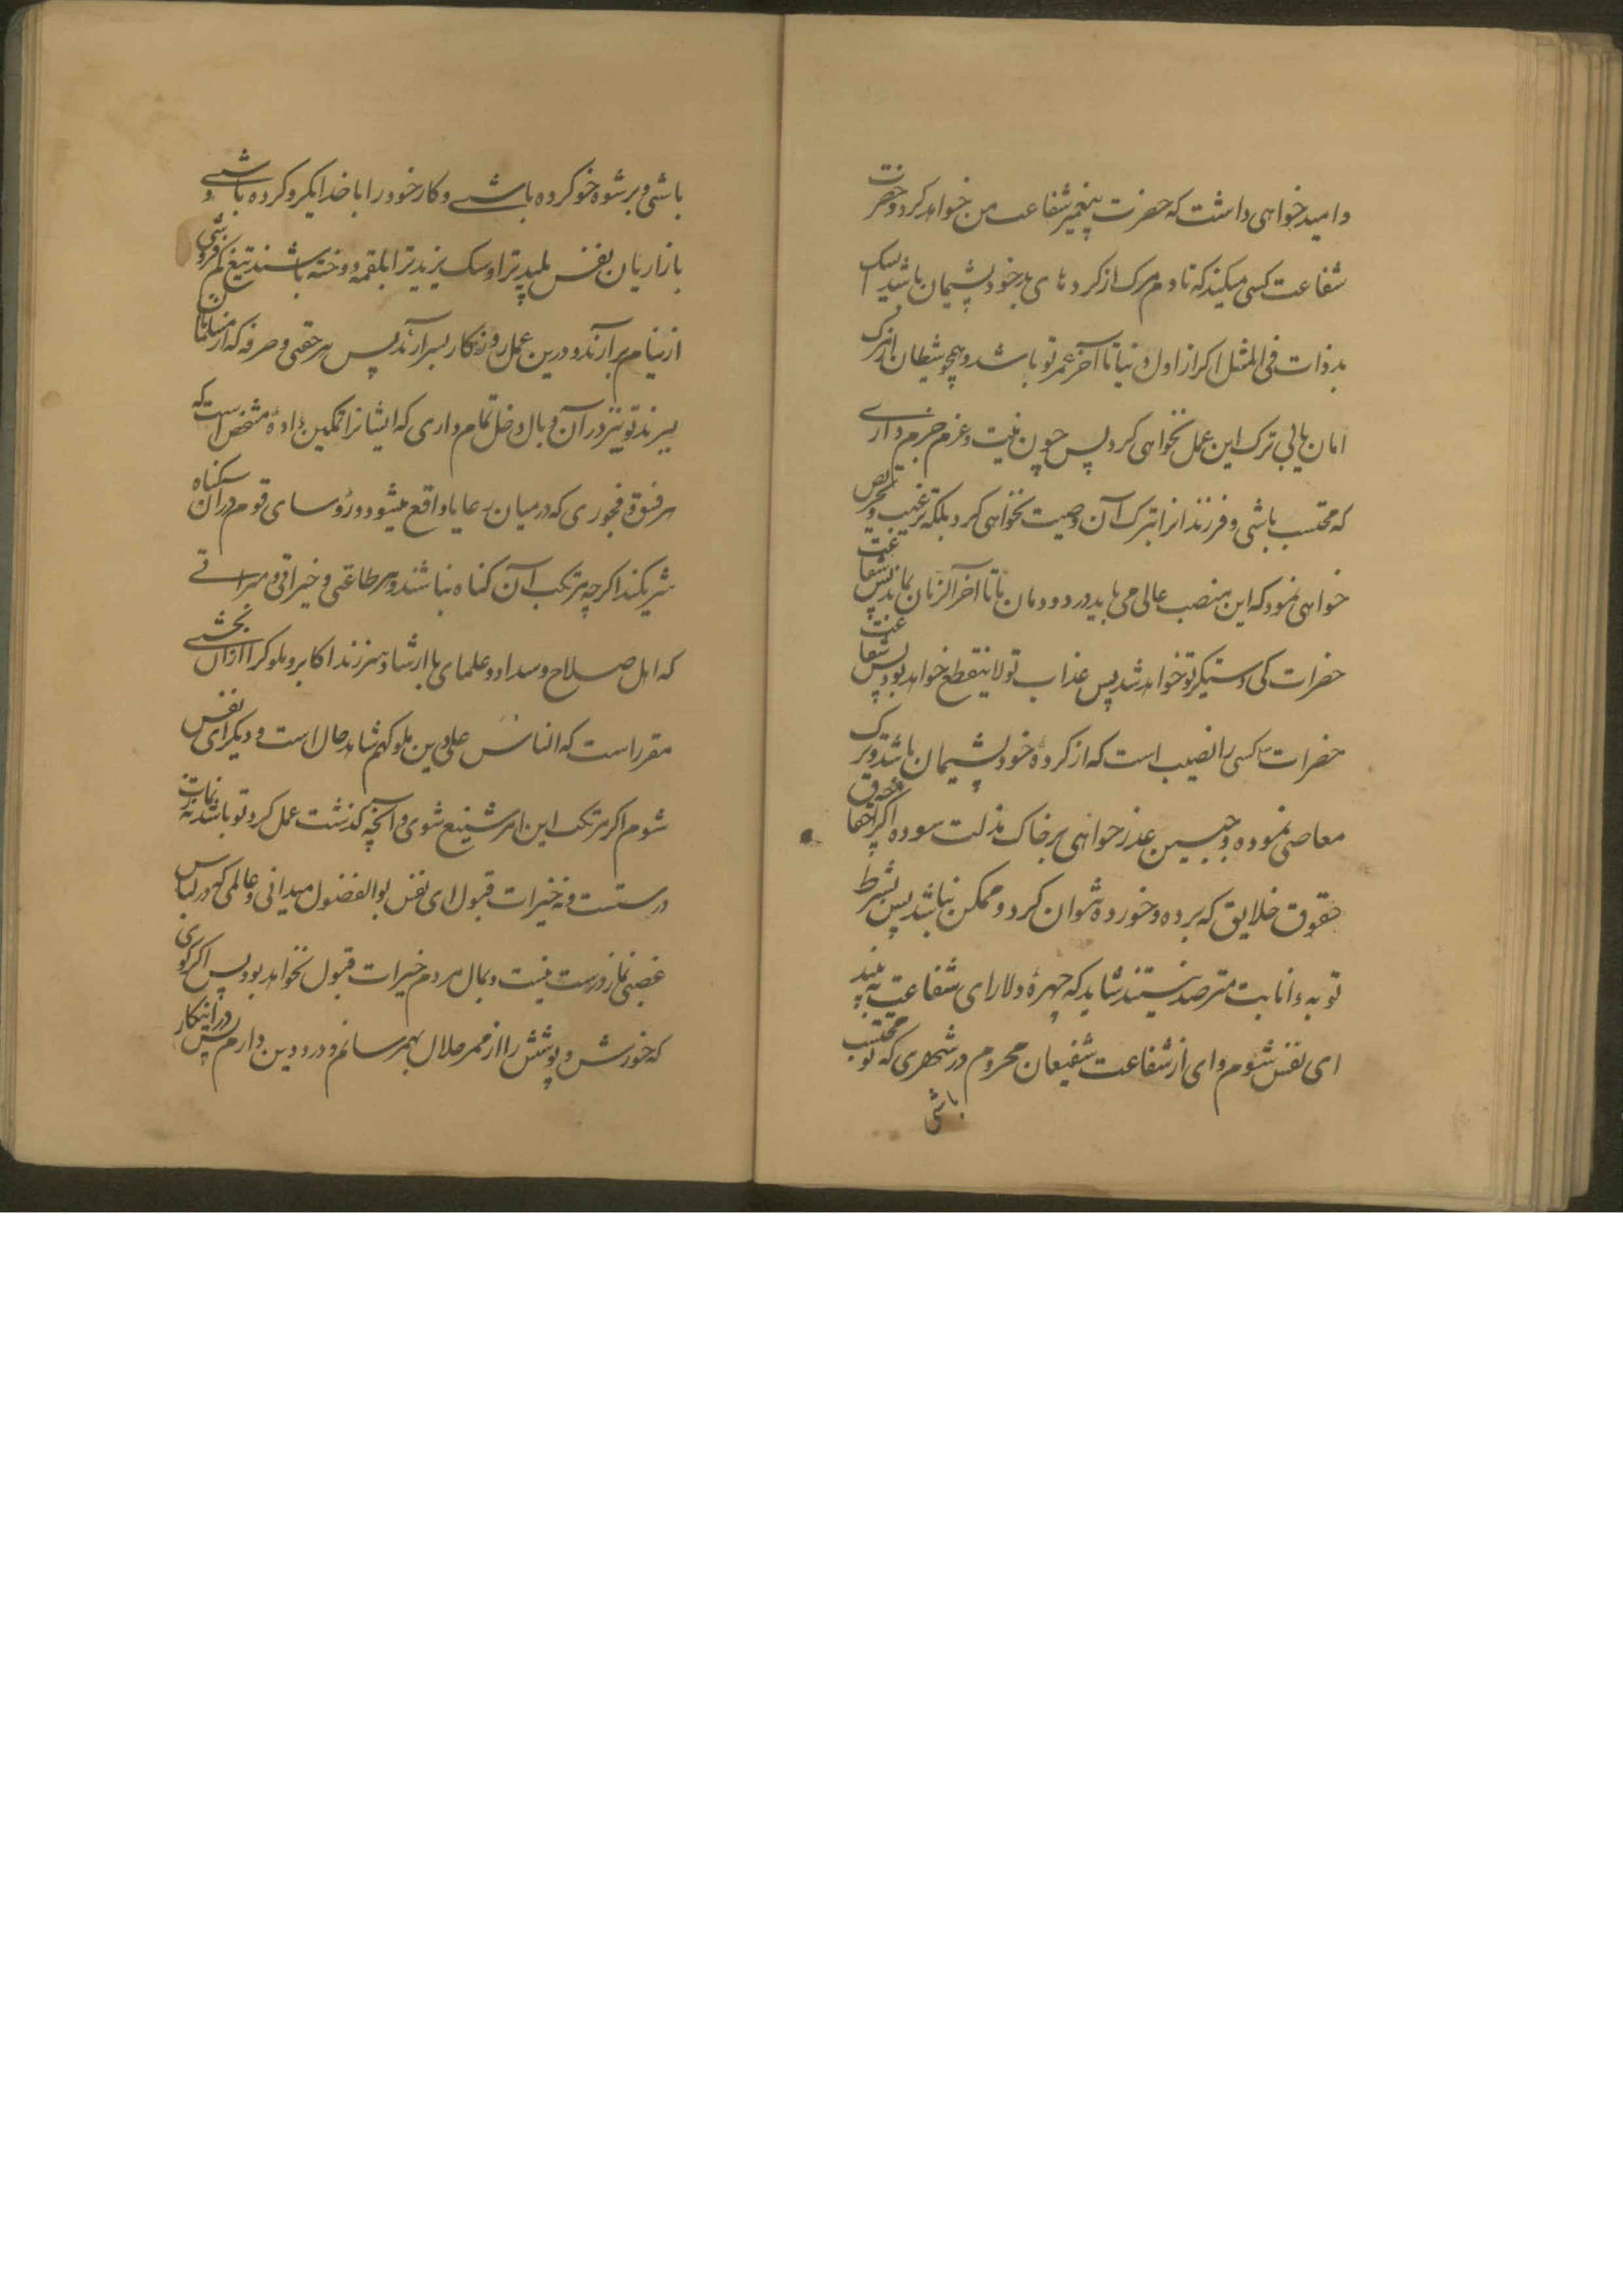 و امید خواهی داشت که حضرت پیغمبر شفاعت من خواهد کرد و حضرت
شفاعت کسی میکند که تا دم مرک از کردهای بد خود پشیمان باشد ای سک
بد ذات فی المثل اکر از اول دنیا تا آخر عمر تو باشد و همچو شیطان از مرک
امان یابی ترک این عمل نخواهی کرد پس چون نیت و عزم جزم داری
که محتسب باشی و فرزندانرا بترک آن وصیت نخواهی کرد بلکه ترغیب و تحریص
خواهی نمود که این منصب عالی می باید در دودمان ما تا آخر الزمان بماند پس شفاعت
حضرات کی دستکیر تو خواهد شد پس عذاب تو لا ینقطع خواهد بود پس شفاعت
حضرات کسی را نصیب است که از کردهٔ خود پشیمان باشد و ترک
معاصی نموده و جبین عذر خواهی بر خاک مذلت سوده اکر احقاق
حقوق خلایق که برده و خورده نتوان کرد و ممکن نباشد پس بشرط
توبه و انابت مترصد نشیند شاید که چهرهٔ دلارای شفاعت به بیند
ای نفس شوم و ای از شفاعت شفیعان محروم در شهری که تو محتسب
باشی
باشی و برشوه خو کرده باشی و کار خود را با خدا یکرو کرده باشی و
بازاریان نفس پلید ترا و سک یزید ترا بلقمه دوخته باشند تیغ کم فروشی
از نیام بر آرند و درین عمل روزکار بسر آرند پس هر حقی و صرفه که از مسلمانان
ببرند تو نیز در آن وبال دخل تمام داری که ایشانرا تمکین دادهٔ مشخص است که
هر فسق و فجوری که در میان رعایا واقع میشود رؤسای قوم در آن کناه
شریکند اکرچه مرتکب آن کناه نباشند و هر طاعتی و خیراتی و مبراتی
که اهل صلاح و سداد و علمای با ارشاد سر زند اکابر و ملوک را از آن بخشی
مقرر است که الناس علی دین ملوکهم شاهد حال است و دیکر ای نفس
شوم اکر مرتکب این امر شنیع شوی و آنچه کذشت عمل کرد تو باشد نه نمازت
درستست و نه خیرات قبول ای نفس بوالفضول میدانی و عالمی که در لباس
غصبی نماز درست نیست و بمال مردم خیرات قبول نخواهد بود پس اکر کوئی
که خورش و پوشش را از ممر حلال بهم رسانم و درد دین دارم پس در اینکار